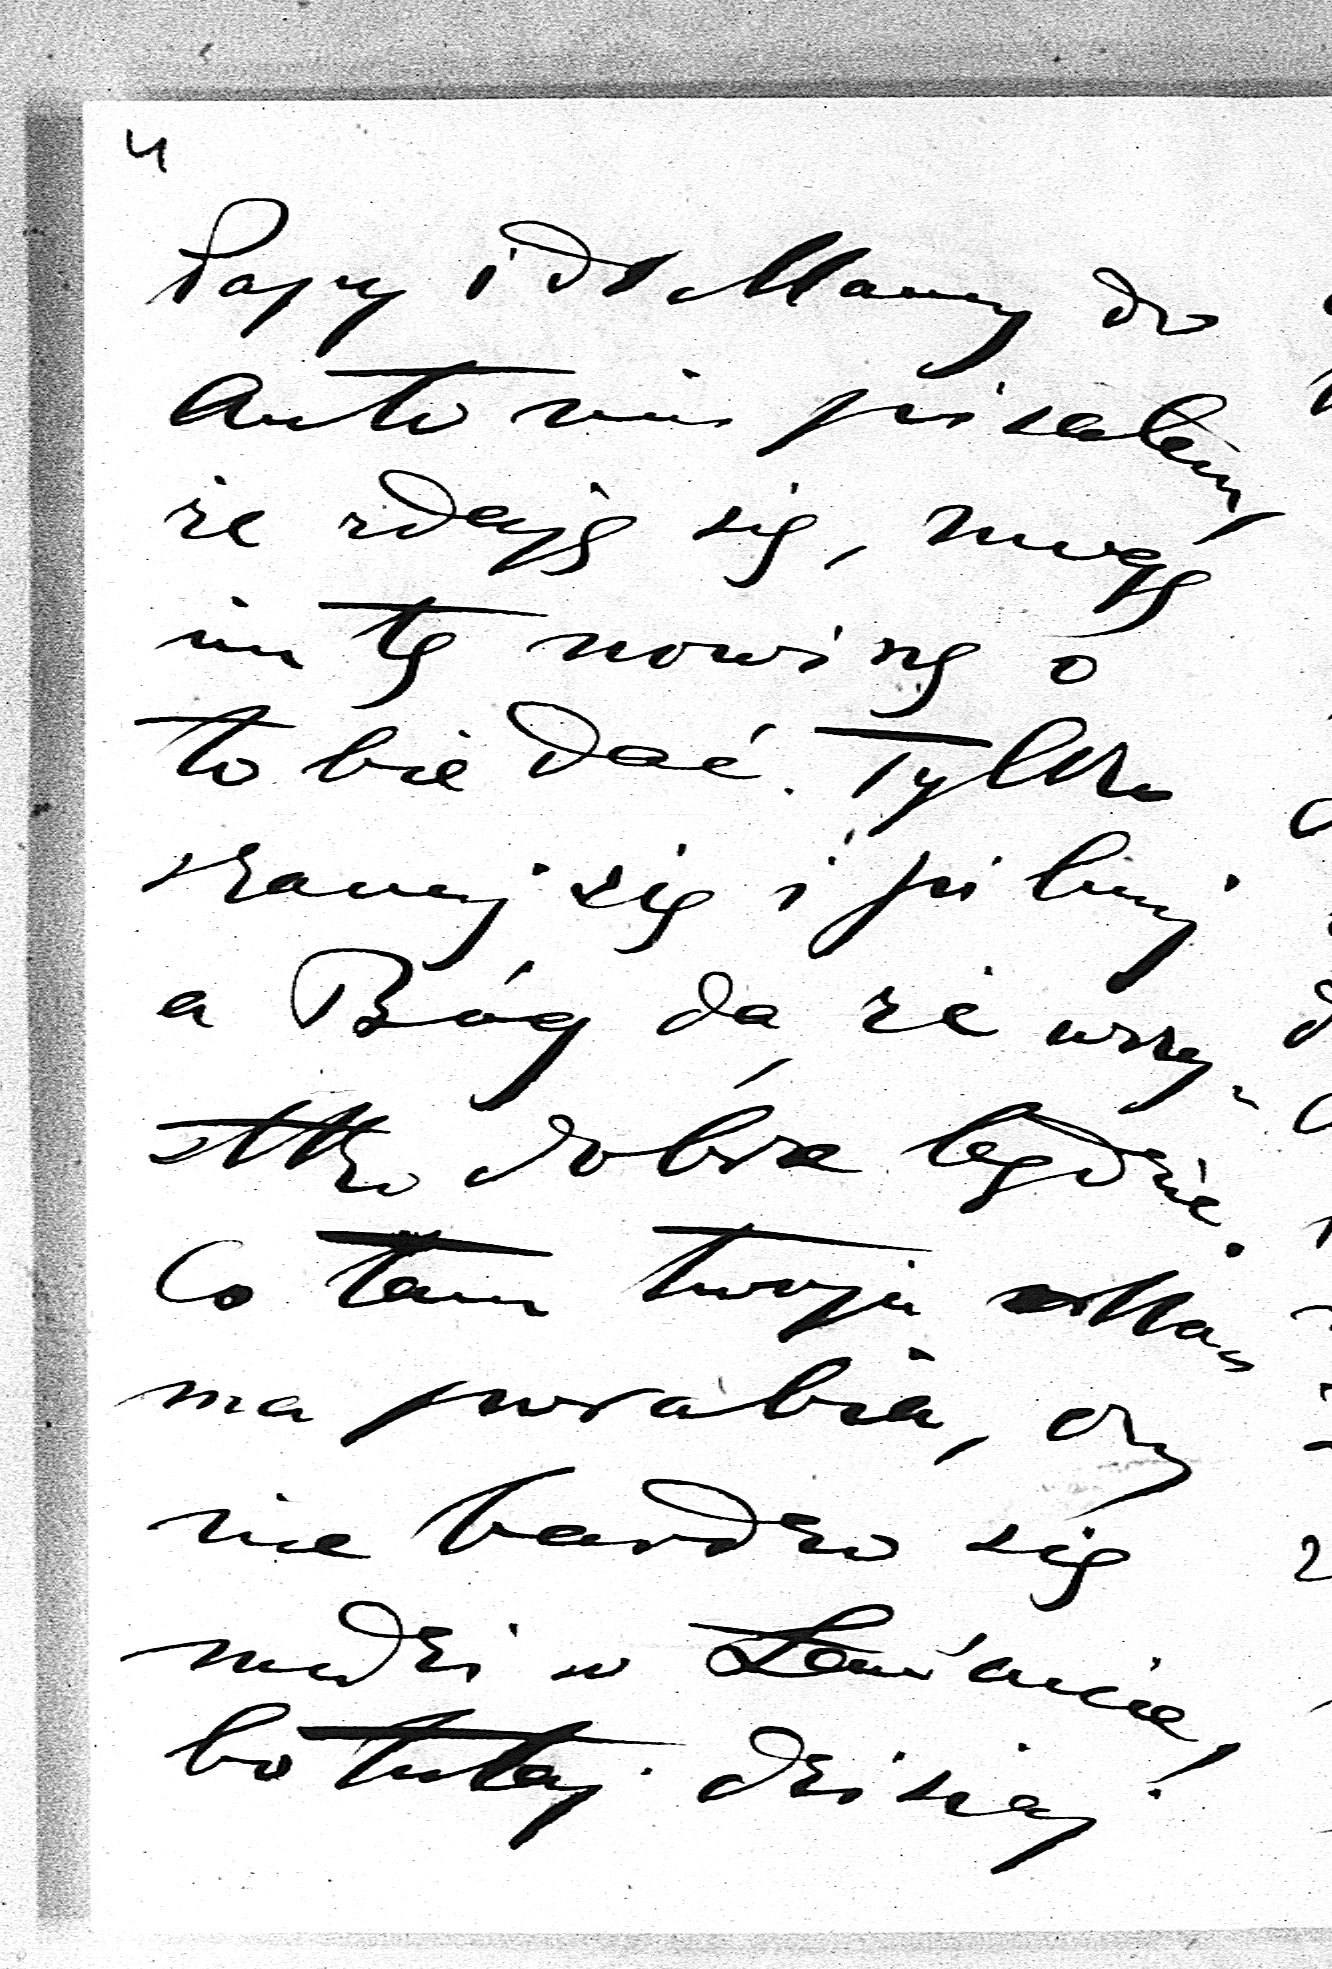 4
Papy i do Mamy do
Antonin pisałem,
że zdaję się, mogę
im tę nowinę o
tobie dać. Tylko
szanuj się i pilnuj
a Bóg da, że wszy-
stko dobrze będzie.
Co tam twoja Ma-
ma porabia, czy
nie bardzo się
nudzi w Łańcucie!
bo tutaj dzisiaj